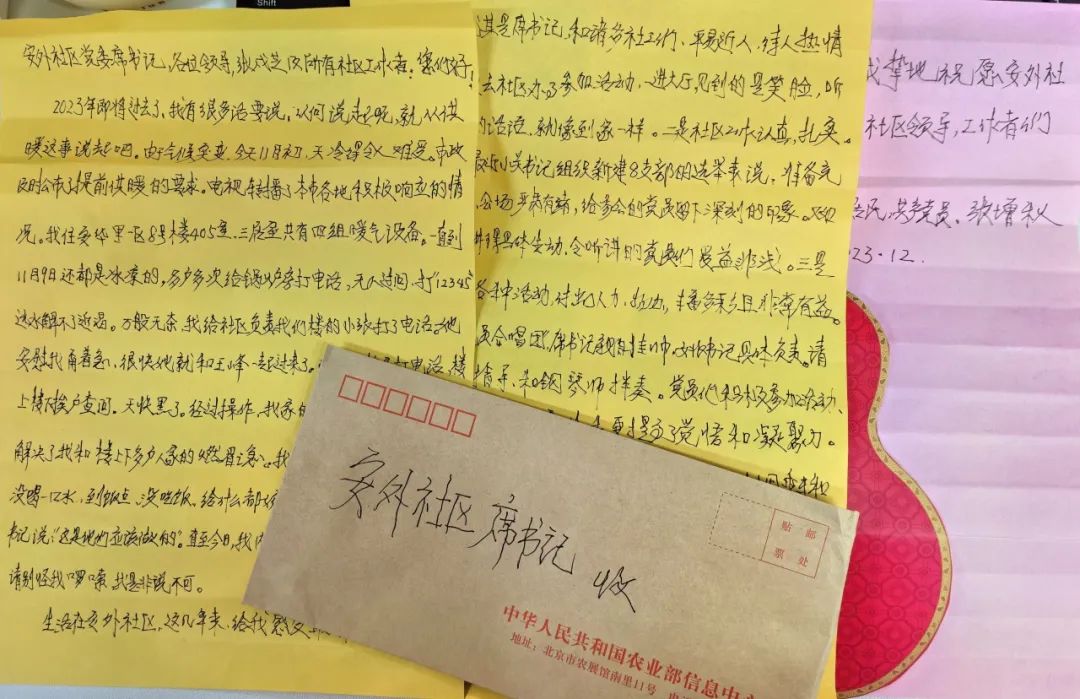 安外社区党委席书记,各位领导,张成芝及所有社区工作者:您们好!
2023年即将过去了,我有很多话要说,从何说起呢,就从供
暖这事说起吧。由于气候突变,今天11月初,天冷得令人难受。市政
及时公布过提前供暖的要求。电视转播了本市各地积极响应的情
况。我住安华里一区8号楼405室,三居室共有四组暖气设备。一直到
11月9日还都是冰凉的,多户多次给锅炉房打电话,无人过问,打“12345”
远水解不了近渴。万般无奈,我给社区负责我们楼的小张打了电话,她
安慰我甭着急,很快她就和王峰一起过来了。
打电话,楼
上楼下挨户查问。天快黑了。经过操作,我家的
解决了我和楼上下多户人家的燃眉之急。我
没喝一口水,到饭点,没吃饭。给什么都
书记说:“这是他们应该做的”。直至今日,我
请别怪我啰嗦,我是非说不可。
生活在安外社区,这几年来,给我感受
其是席书记,和诸多社工们,平易近人,待人热情
去社区办了参加活动,一进大厅,见到的是笑脸,听
的话语,就像到家一样。二是社区工作认真,扎实。
书记组织新建8支部的选举来说,准备充
会场严肃有序,给参会的党员留下深刻的印象。
课具体生动,令听讲的党员们受益非浅!三是
各种活动,付出人力,物力,丰富多彩且非常有益。
员合唱团,席书记亲自挂帅,书记具体负责。请
指导,和钢琴师伴奏。党员们积极参加活动、
更提高了觉悟和凝聚力。
挚地祝愿安外社
社区领导,工作者们
居民,共产党员、张增秋
23.12.
安外社区 席书记 收
贴 邮
票 处
中华人民共和国农业部信息中心
地址:北京市农展馆南里11号
Shift